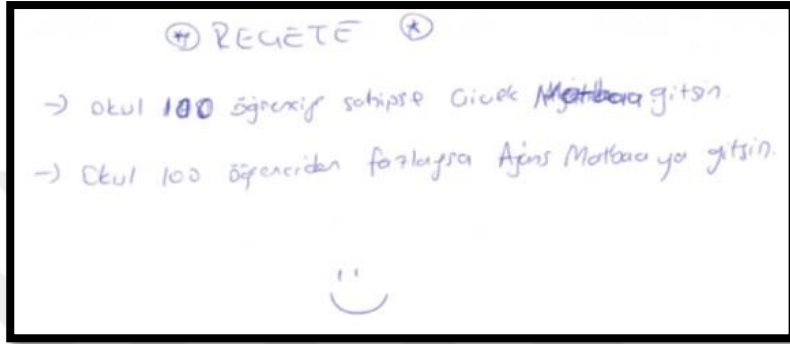 REÇETE
→ Okul 100 öğrenciye sahipse Çiçek Matbaa gitsin.
→ Okul 100 öğrenciden fazlaysa Ajans Matbaaya gitsin.